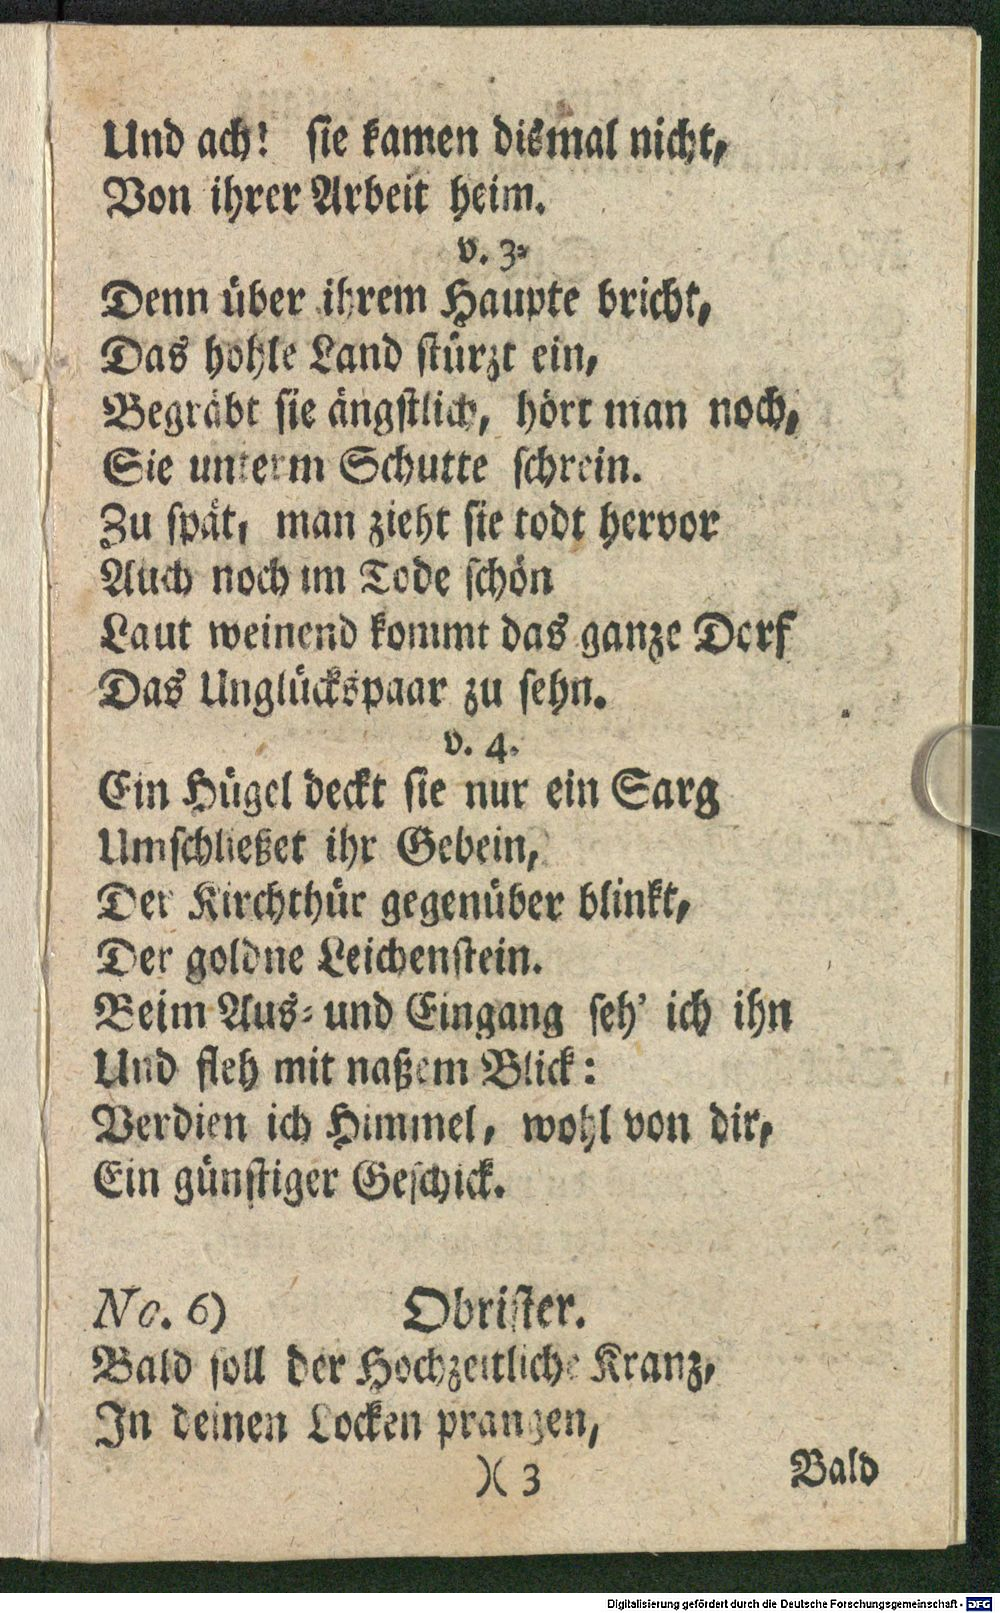 Und ach! sie kamen dismal nicht,
Von ihrer Arbeit heim.
v. 3.
Denn über ihrem Haupte bricht,
Das hohle Land stürzt ein,
Begräbt sie ängstlich, hört man noch,
Sie unterm Schutte schrein.
Zu spät, man zieht sie todt hervor
Auch noch im Tode schön
Laut weinend kommt das ganze Dorf
Das Unglückspaar zu sehn.
v. 4.
Ein Hügel deckt sie nur ein Sarg
Umschließet ihr Gebein,
Der Kirchthür gegenüber blinkt,
Der goldne Leichenstein.
Beim Aus- und Eingang seh' ich ihn
Und fleh mit naßem Blick:
Verdien ich Himmel, wohl von dir,
Ein günstiger Geschick.
No. 6) Obrister.
Bald soll der Hochzeitliche Kranz,
In deinen Locken prangen,
)( 3 Bald
Digitalisierung gefördert durch die Deutsche Forschungsgemeinschaft - DFG